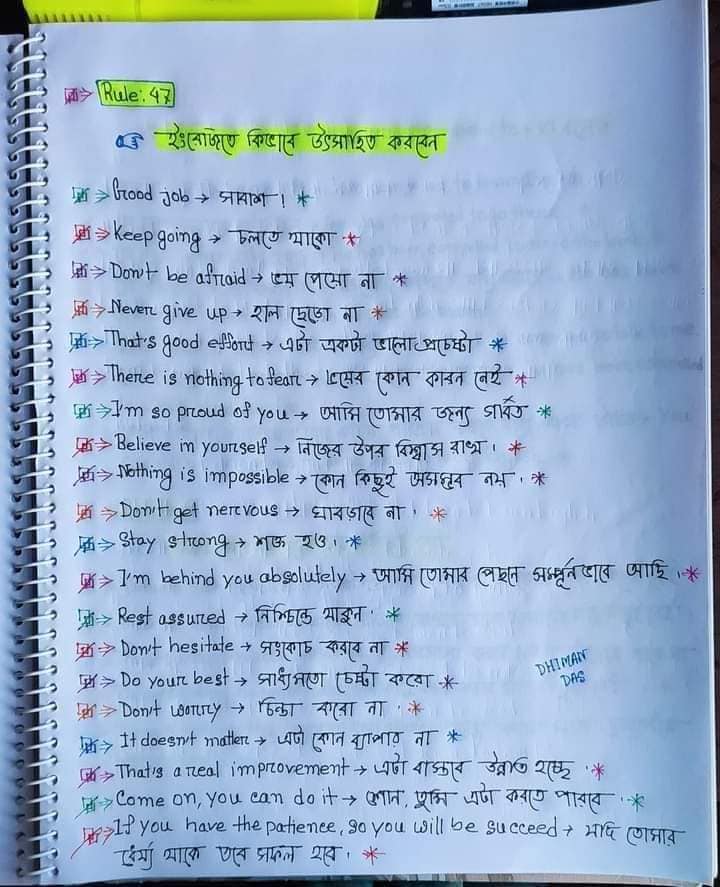 Rule: 47
ইংরেজিতে কিভাবে উৎসাহিত করবেন
Good job → সাবাশ।
Keep going → চলতে থাকো
Don't be afraid → ভয় পেয়ো না
Never give up → হাল ছেড়ো না
That's good effort → এটা একটা ভালো প্রচেষ্টা
There is nothing to fear → ভয়ের কোন কারন নেই
I'm so proud of you → আমি তোমার জন্য গর্বিত
Believe in yourself → নিজের উপর বিশ্বাস রাখ।
Nothing is impossible → কোন কিছুই অসম্ভব নয়।
Don't get nervous → ঘাবড়াবে না।
Stay strong → শক্ত হও।
I'm behind you absolutely → আমি তোমার পেছনে সম্পূর্নভাবে আছি।
Rest assured → নিশ্চিন্তে থাকুন।
Don't hesitate → সংকোচ করবে না
Do your best → সাধ্যমতো চেষ্টা করো।
DHIMAN
DAS
Don't worry → চিন্তা করো না।
It doesn't matter → এটা কোন ব্যাপার না
That's a real improvement → এটা বাস্তবে উন্নতি হচ্ছে।
Come on, you can do it → শোন, তুমি এটা করতে পারবে।
If you have the patience, so you will be succeed → যদি তোমার
ধৈর্য্য থাকে তবে সফল হবে।